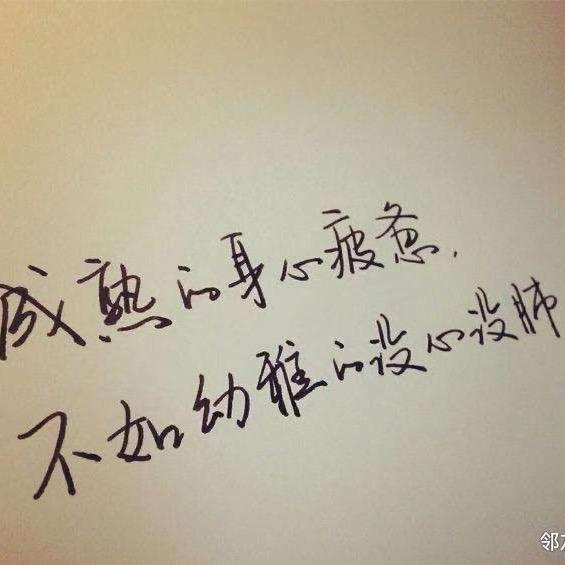 成熟的身心疲惫.
不如幼雅的没心没肺
邻